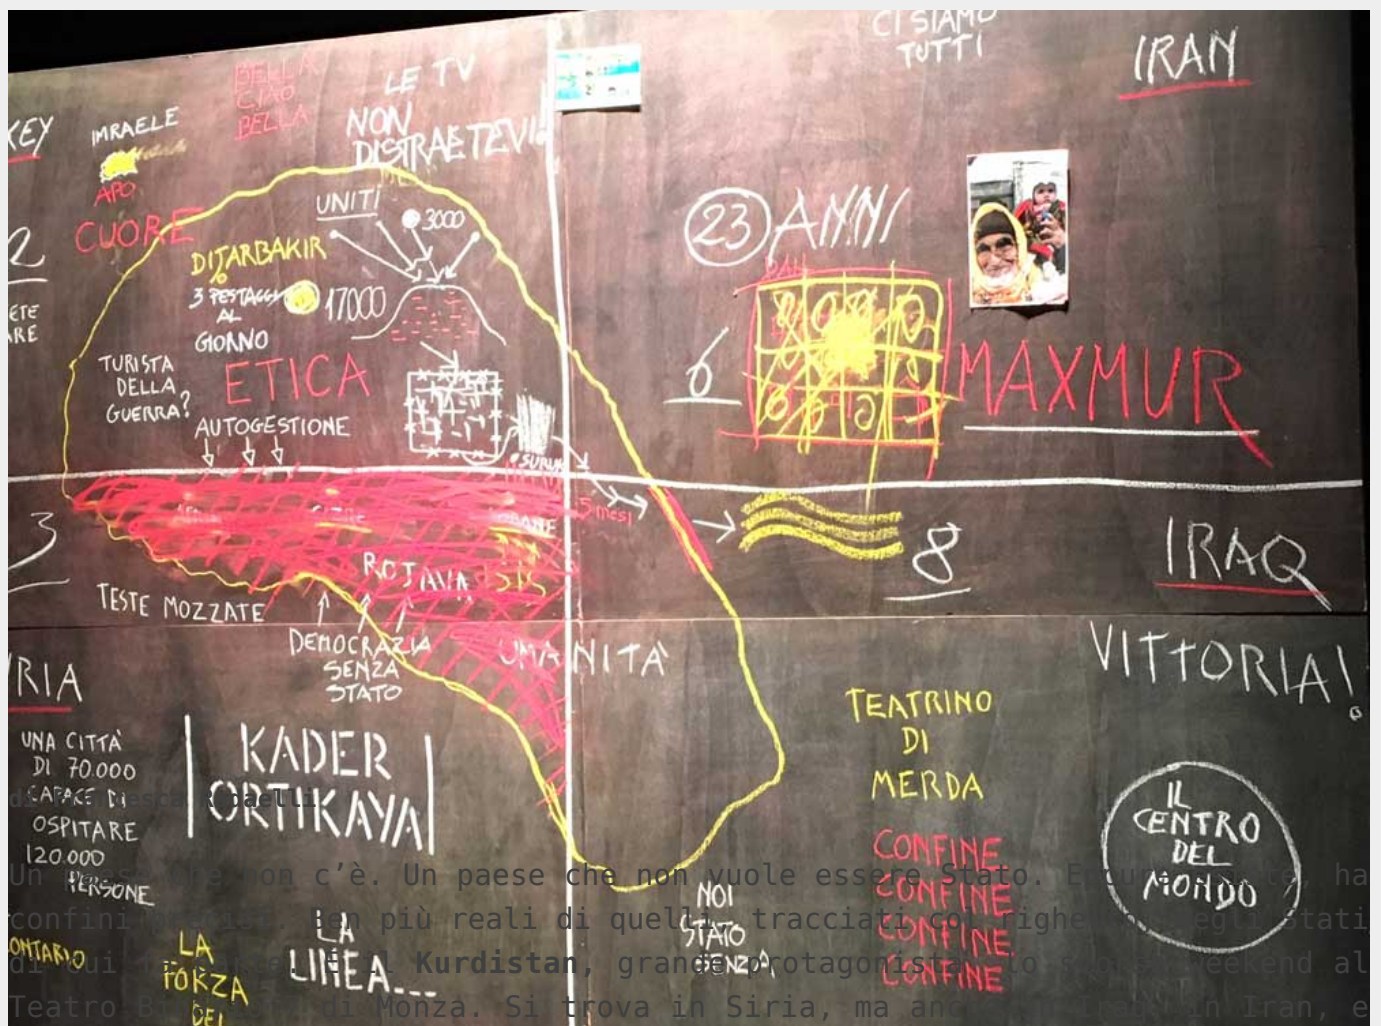 CI SIAMO
TUTTI
IRAN
BELLA
CIAO
BELLA
LE TV
NON
DISTRAETEVI!
KEY
IMRAELE
APO
CUORE
UNITI
3000
23 ANNI
2
DIJARBAKIR
3 PESTAGGI
AL
GIORNO
17000
ETE
ARE
TURISTA
DELLA
GUERRA?
ETICA
AUTOGESTIONE
6
MAXMUR
SURUK
5 mesi
3
ROJAVA
ISIS
8
IRAQ
TESTE MOZZATE
DEMOCRAZIA
SENZA
STATO
UMANITÀ
VITTORIA!
RIA
UNA CITTÀ
DI 70.000
CAPACE DI
OSPITARE
120.000
PERSONE
KADER
ORTIKAYA
TEATRINO
DI
MERDA
CONFINE
CONFINE
CONFINE
CONFINE
IL
CENTRO
DEL
MONDO
NOI
STATO
SENZA
ONTARIO
LA
FORZA
DEL
LA
LINEA...
Un non c'è. Un paese che non vuole essere Stato. ha
confini Ben più reali di quelli tracciati col degli Stati
di cui il Kurdistan, grande protagonista weekend al
Teatro di Monza. Si trova in Siria, ma in Iran, e